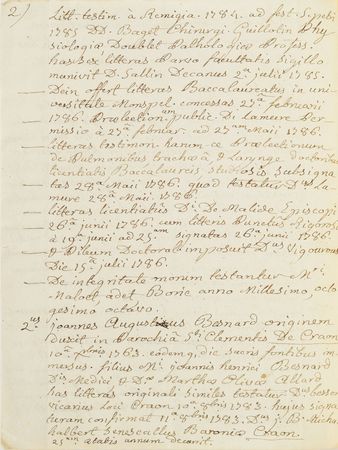 2)
Litt. testim. à Remigia. 1784. ad fest.
1785 DD. Baget Chirurgi. Guillotin Phy
siologiæ Doublet Pathologiæ Profess.
hasce litteras Parvo facultatis Sigillo
munivit D. Sallin Decanus 2ª julii 1785.
— Dein offert litteras Baccalaureatus in uni-
versitate Monspel. concessas 25ª februarii
1786. Prælectionum public. Di Lamure Per
missio à 25ª februar. ad 25am Maii 1786.
— litteras testimon. harum ce Prælectionum
de Pulmonibus trachæa & Larynge doctoribus
licentiatis Baccalaureis Studiosis Subsigna
tas 28ª Maii 1786. quod testatur Dus La
mure 28ª Maii 1786.
— litteras licentiatus Di De Malide Episcopi
26ª junii 1786. cum litteris
à 19ª junii ad 25am signatas 26ª junii 1786.
— & Pileum Doctorale imposuit Dus Vigourous
Die 15ª julii 1786.
— De integritate morum testantur Mri
Malott adet Borie anno Millesimo octo
gesimo octavo.
2us joannes Augustinus Besnard originem
Duxit in Parochiâ Sti Clementis De Craon
10ª 1763. eademque die sacris fontibus im
mersus. filius Mi joannis henrici Besnard
Dris Medici & Dæ Marthæ Allard
has litteras originali similes testatur Dus
vicarius loci Craon 10ª 8bris 1783. hujus signa
turam confirmat 11ª 8bris 1783. Dus j. B.
halbert Senescallus Baroniæ Craon.
25um ætatis annum decurrit.